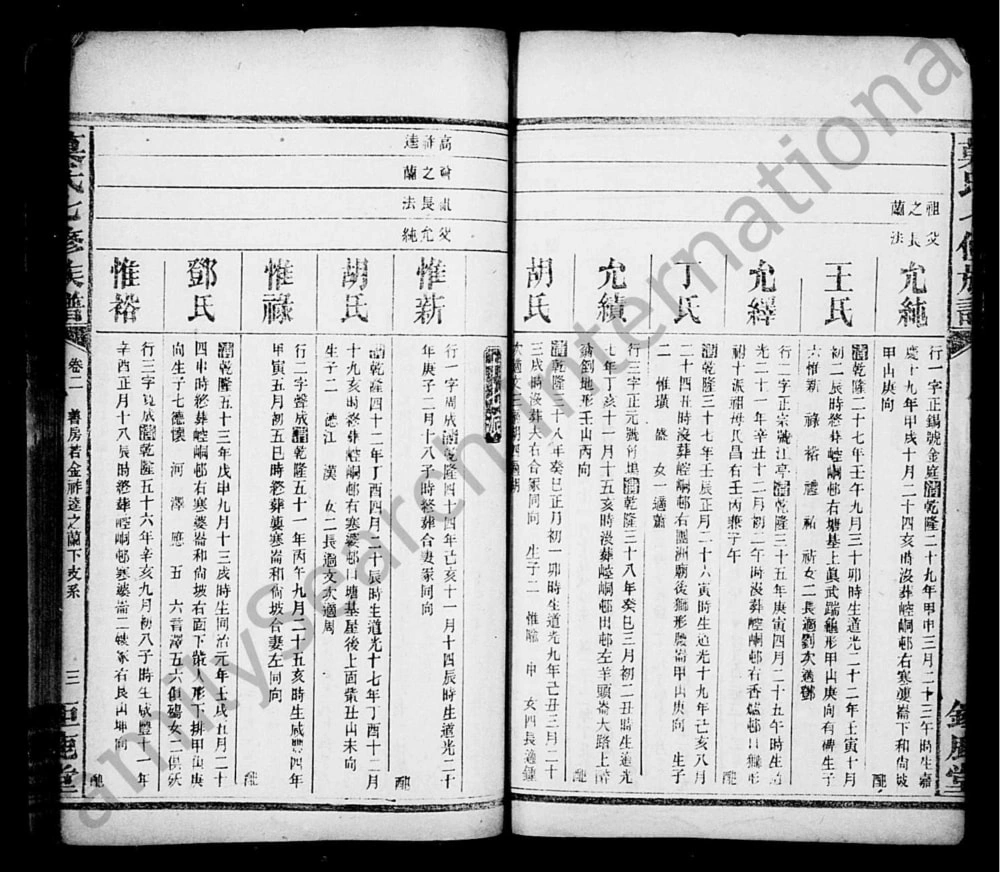 祖父
之長
蘭法
允純
行一字正錫號金庭清乾隆二十九年甲申三月二十三午時生嘉
慶十九年甲戌十月二十四亥時沒葬崆峒邨右寒婆崙下和尚坡
甲山庚向
配
王氏
清乾隆二十七年壬午九月三十卯時生道光二十二年壬寅十月
初二辰時終葬崆峒邨右塘基上眞武踹龜形甲山庚向有碑生子
六惟新 祿 裕 禮 祐 祜女二長適劉次適鄧
允經
行二字正宗號江亭清乾隆三十五年庚寅四月二十五午時生道
光二十一年辛丑十二月初二午時沒葬崆峒邨右香爐邨口獅形
祔十派祖母氏昌右壬丙兼子午
配
丁氏
清乾隆三十七年壬辰正月二十六寅時生道光十九年己亥八月
二十四丑時沒葬崆峒邨右團洲廟後獅形腰崙甲山庚向 生子
二 惟璜 盛 女一適
允績
行三字正元號 清乾隆三十八年癸巳三月初二丑時生道光
七年丁亥十一月十五亥時沒葬崆峒邨田邨左羊頭崙大路上
劉地形壬山丙向
配
胡氏
清乾隆三十八年癸巳正月初一卯時生道光九年己丑三月二十
三戌時沒葬夫右合冢同向 生子二 惟瞻 申 女四長適鍾
次適文三適胡四適胡
高祖
祥之
逵蘭
祖父
長允
法純
派
惟新
行一字周成清乾隆四十四年己亥十一月十四辰時生道光二十
年庚子二月十八子時終葬合妻冢同向
配
胡氏
清乾隆四十二年丁酉四月二十辰時生道光十七年丁酉十二月
十九亥時終葬崆峒邨右寒婆邨口塘基屋後上面葉丑山未向
生子二 德江 漢 女二長適文次適周
惟祿
行二字聲成清乾隆五十一年丙午九月二十五亥時生咸豐四年
甲寅五月初五巳時終葬婆寒崙和尚坡合妻左同向
配
鄧氏
清乾隆五十三年戊申九月十三戌時生同治元年壬戌五月二十
四申時終葬崆峒邨右寒婆崙和尚坡右面下 人形下排甲山庚
向生子七德懷 河 澤 應 五 六 言澤五六俱殤女二俱殀
惟裕
行三字 成清乾隆五十六年辛亥九月初八子時生咸豐十一年
辛酉正月十八辰時終葬崆峒邨寒婆崙二媒冢右艮山坤向
配
莫氏七修族譜
卷二
善房若金祥逵之蘭下支系
三
鉅鹿堂
amilySearch International